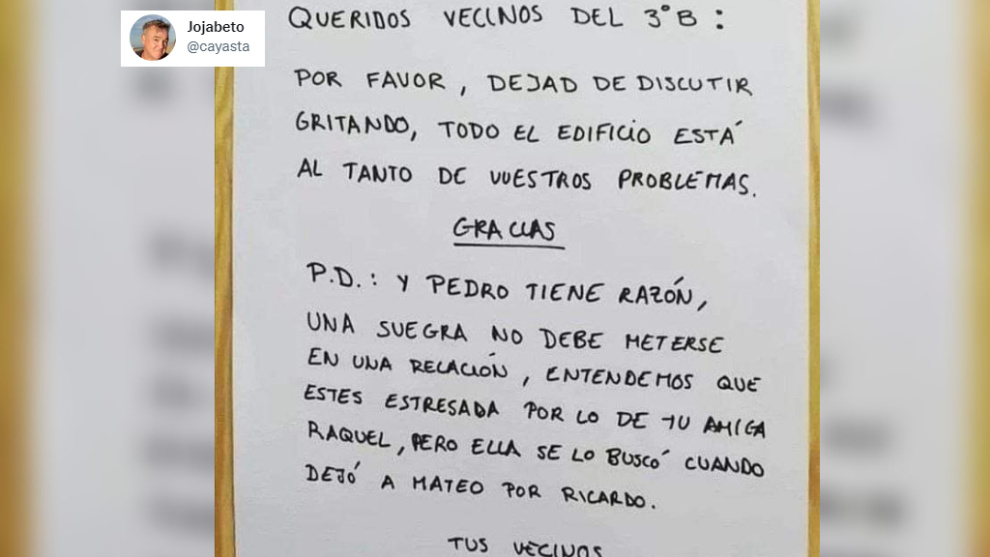 Jojabeto
@cayasta
QUERIDOS VECINOS DEL 3ºB:
POR FAVOR, DEJAD DE DISCUTIR
GRITANDO, TODO EL EDIFICIO ESTÁ
AL TANTO DE VUESTROS PROBLEMAS.
GRACIAS
P.D.: Y PEDRO TIENE RAZÓN,
UNA SUEGRA NO DEBE METERSE
EN UNA RELACIÓN, ENTENDEMOS QUE
ESTES ESTRESADA POR LO DE TU AMIGA
RAQUEL, PERO ELLA SE LO BUSCÓ CUANDO
DEJÓ A MATEO POR RICARDO.
TUS VECINOS